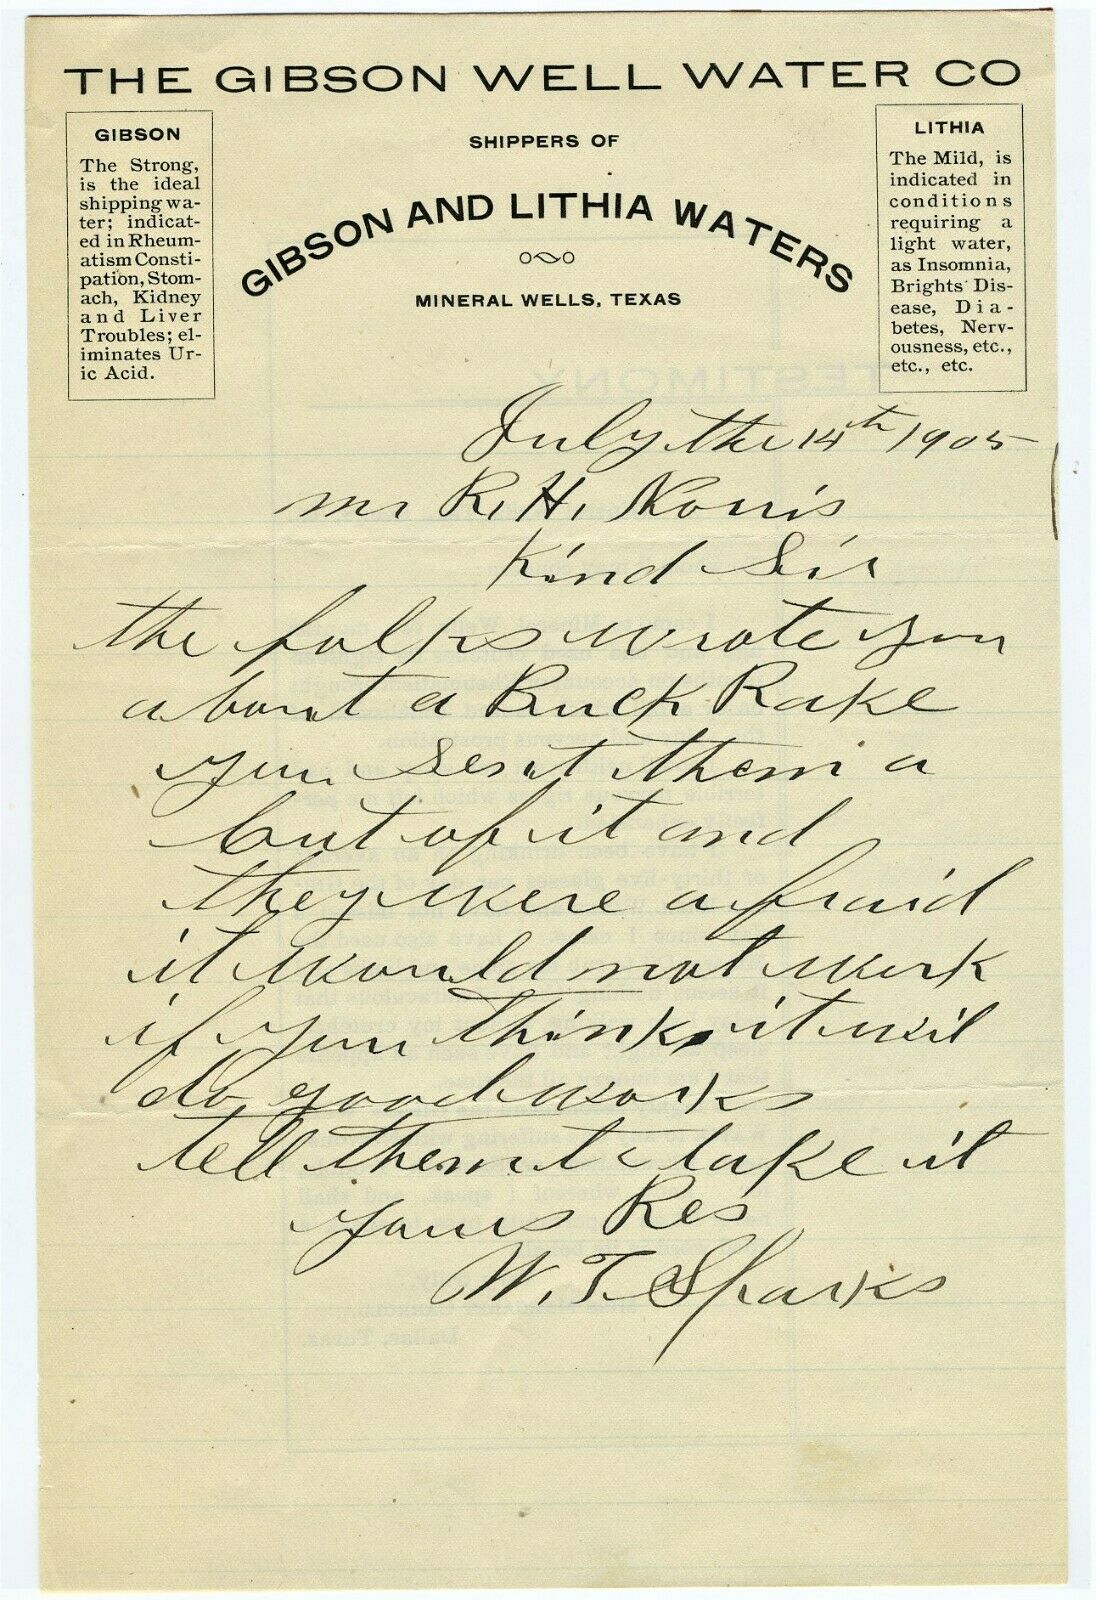 THE GIBSON WELL WATER CO
GIBSON
The Strong,
is the ideal
shipping wa-
ter; indicat-
ed in Rheum-
atism Consti-
pation, Stom-
ach, Kidney
and Liver
Troubles; el-
iminates Ur-
ic Acid.
SHIPPERS OF
GIBSON AND LITHIA WATERS
MINERAL WELLS, TEXAS
LITHIA
The Mild, is
indicated in
conditions
requiring a
light water,
as Insomnia,
Brights' Dis-
ease, Dia-
betes, Nerv-
ousness, etc.,
etc., etc.
July the 14th 1905
Mr R. H. Norris
Kind Sir
the folks wrote you
about a Buck Rake
you sent them a
cut of it and
they were afraid
it would not work
if you think it wil
do good work
tell them to take it
yours Res
W. T. Sparks